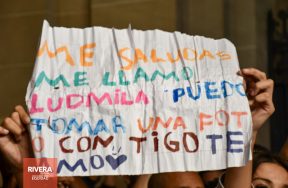 ME SALUDAS
ME LLAMO
LUDMILA PUEDO
TOMAR UNA FOT
O CONTIGO TE
AMO
RIVERA